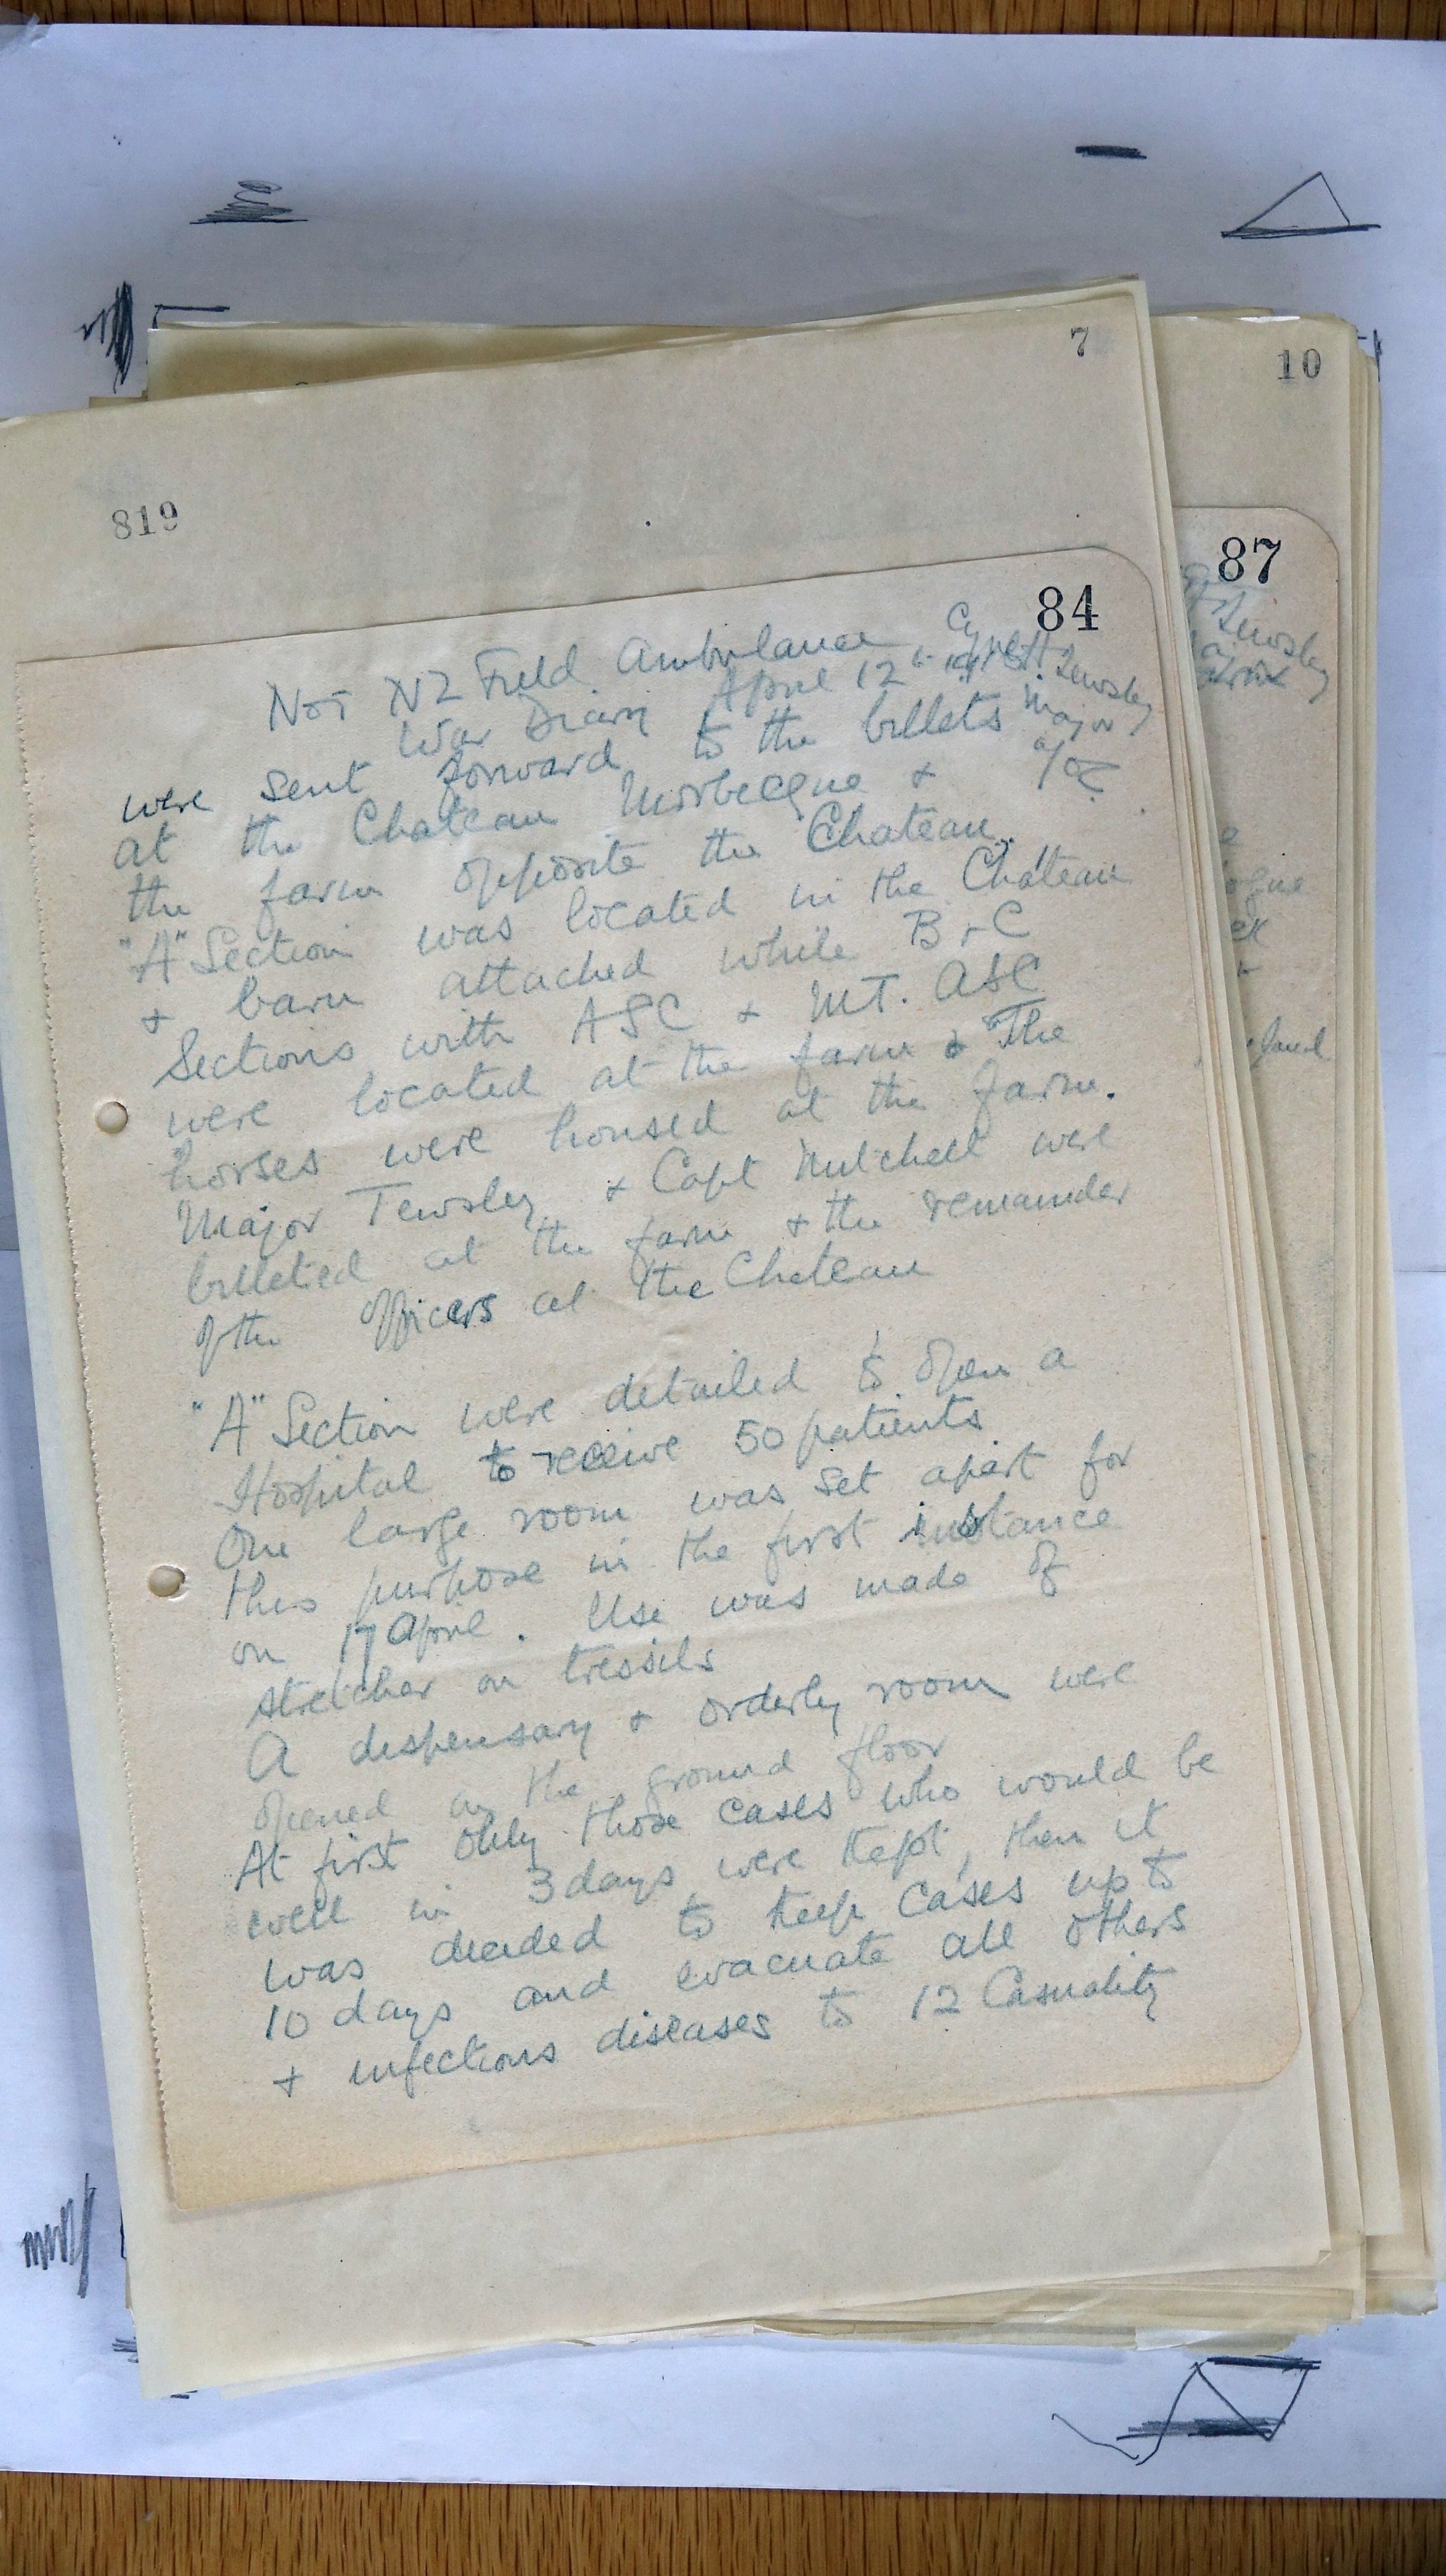 7
10
819
84
87
No 1 NZ Field Ambulance Cyril H. Tewsley
War Diary April 12th 1916 Major
were sent forward to the billets
at the Chateau Morbecque &
the farm opposite the Chateau.
"A" Section was located in the Chateau
& barn attached while B & C
Sections with ASC & MT. ASC
were located at the farm & The
horses were housed at the farm.
Major Tewsley & Capt Mitchell were
billeted at the farm & the remainder
of the officers at the Chateau
"A" Section were detailed to open a
Hospital to receive 50 patients
One large room was set apart for
this purpose in the first instance
on 17 April. Use was made of
stretcher on tressils
A dispensary & orderly room were
opened on the ground floor
At first only those cases who would be
well in 3 days were kept, then it
was decided to keep cases up to
10 days and evacuate all others
& infectious diseases to 12 Casuality
Tewsley